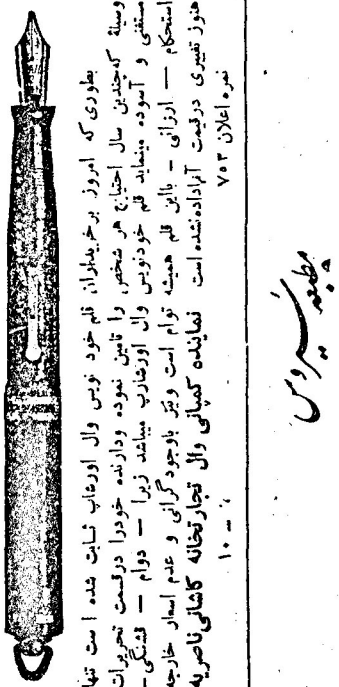 بطوری که امروز بر خریداران قلم خود نویس وال اورشاب ثابت شده است تنها
وسیلۀ که چندین سال احتیاج هر شخص را تامین نموده ودارنده خودرا درقسمت تحریرات
مستغنی و آسوده مینماید قلم خودنویس وال اورشارپ میباشد زیرا — دوام — قشنگی —
استحکام — ارزانی - بااین قلم همیشه توام است ونیز باوجود گرانی و عدم اسعار خارجه
هنوز تغییری درقیمت آنراداده نشده است نماینده کمپانی وال تجارتخانه کاشانی ناصریه
نمره اعلان ۷۵۳ ۱۰
مطبعه سیروس